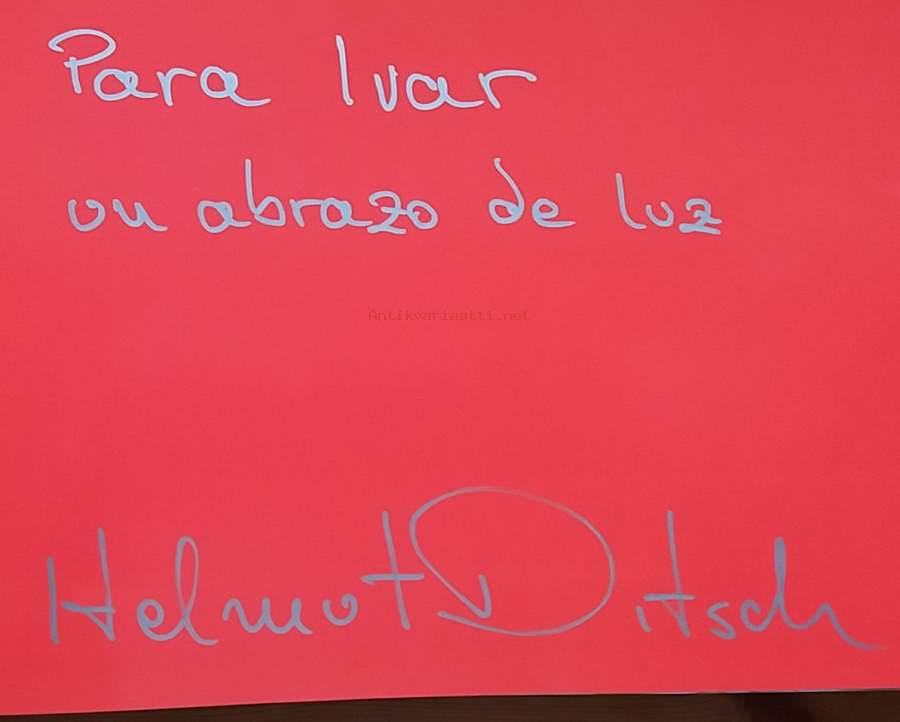 Para Ivar
un abrazo de luz
Antikvariaatti.net
Helmut Ditsch